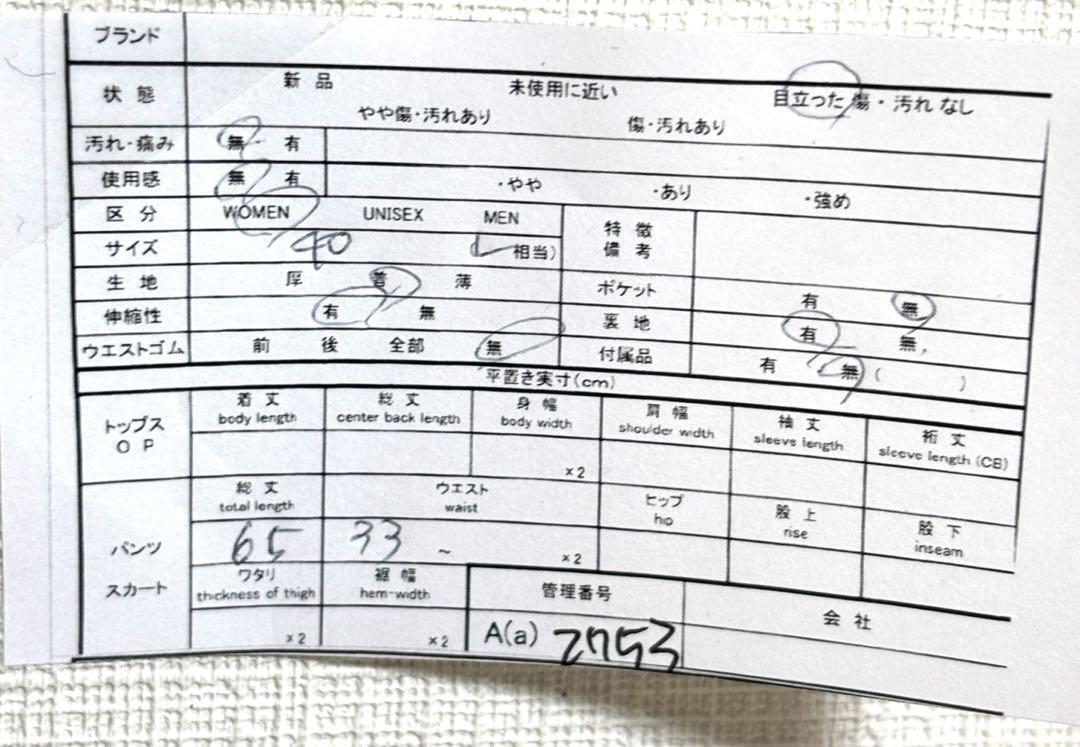 ブランド
状態 新品 未使用に近い 目立った傷・汚れなし
やや傷・汚れあり 傷・汚れあり
汚れ・痛み 無 有
使用感 無 有 ・やや ・あり ・強め
区分 WOMEN UNISEX MEN 特徴
サイズ 40 L 相当) 備考
生地 厚 普 薄 ポケット 有 無
伸縮性 有 無 裏地 有 無
ウエストゴム 前 後 全部 無 付属品 有 無 ( )
平置き実寸(cm)
トップス 着丈 総丈 身幅 肩幅 袖丈 裄丈
OP body length center back length body width shoulder width sleeve length sleeve length (CB)
x2
総丈 ウエスト ヒップ 股上 股下
total length waist hip rise inseam
パンツ 65 33 ~ x2
スカート ワタリ 裾幅 管理番号 会社
thickness of thigh hem-width
x2 x2 A(a) 2753